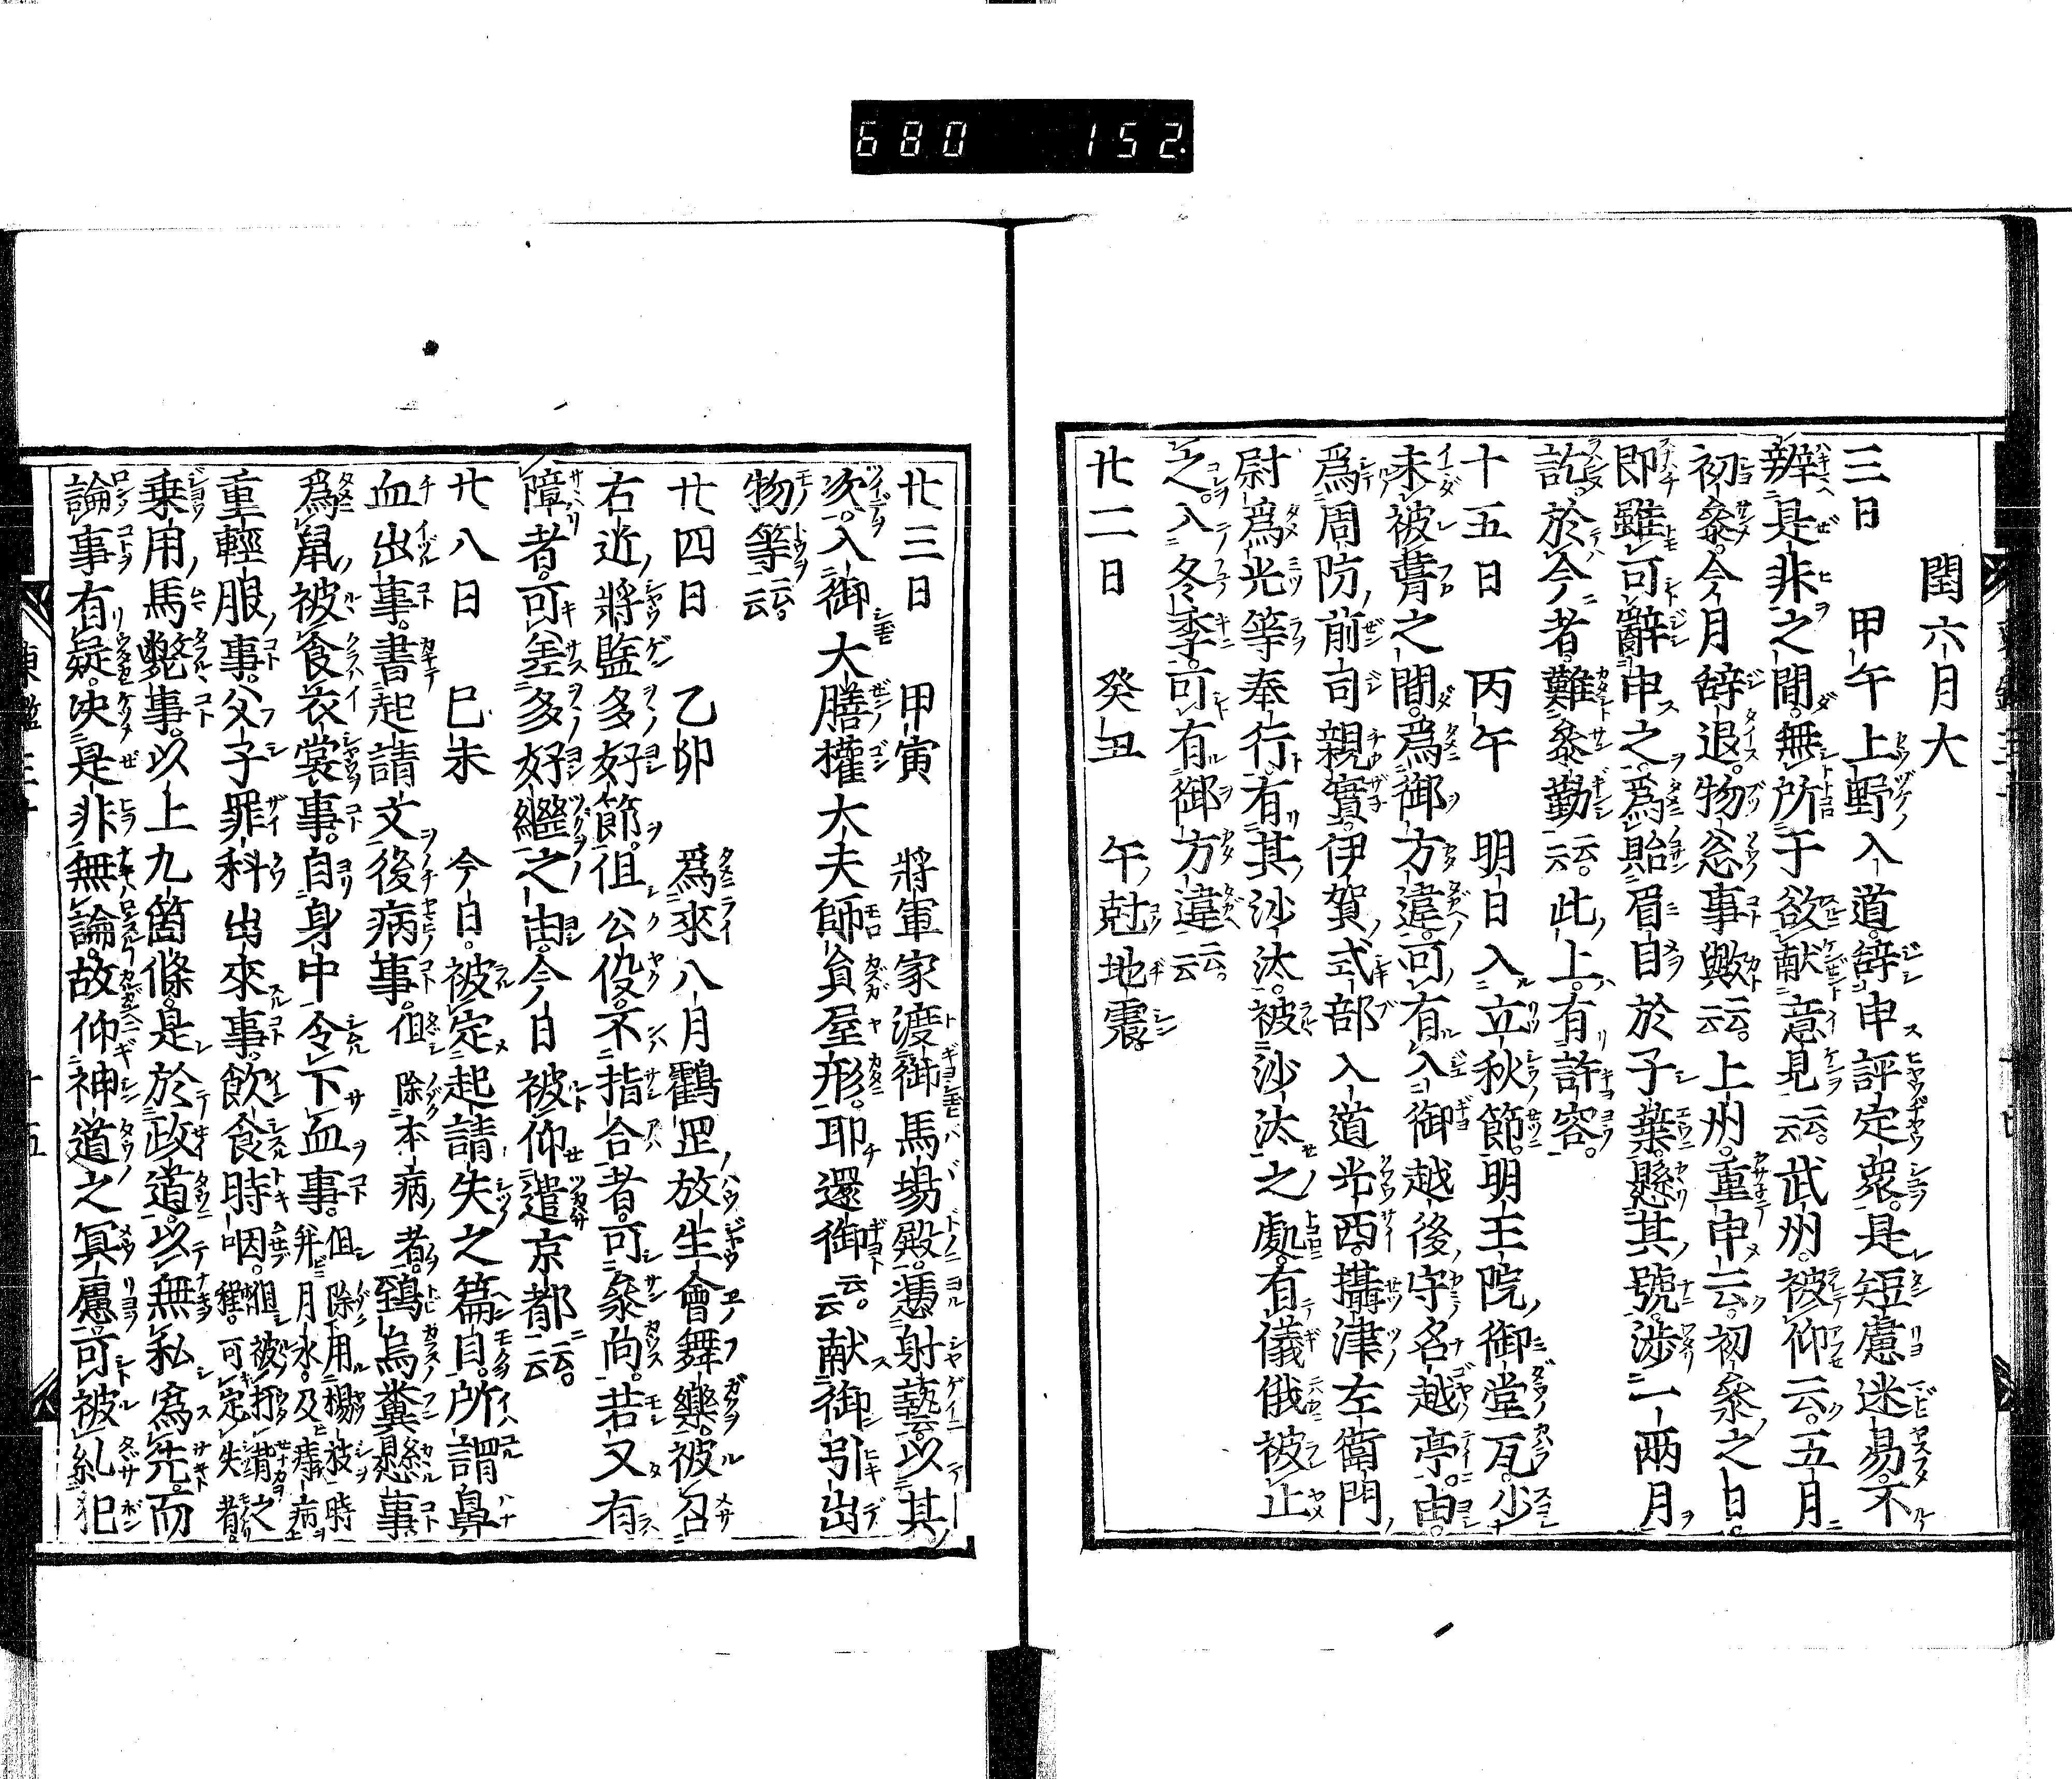 680 152
閏六月大
三日 甲午上野入道辞申評定衆是短慮迷易不
辨是非之間無所于欲献意見云云武州被仰云五月
初參今月辞退物忩事歟云云上州重申云初參之日
即雖可辭申之爲貽眉目於子葉懸其號渉一兩月
訖於今者難參勤云云此上有許容
十五日 丙午 明日入立秋節明王院御堂瓦少
未被葺之間爲御方違可有入御越後守名越亭由
爲周防前司親實伊賀式部入道光西攝津左衛門
尉爲光等奉行有其沙汰被沙汰之處有儀俄被止
之入冬季可有御方違云云
廿二日 癸丑 午尅地震
廿三日 甲寅 將軍家渡御馬場殿覽射藝云以其
次入御大膳權大夫師員屋形耶還御云云献御引出
物等云云
廿四日 乙卯 爲來八月鸖罡放生會舞樂被召
右近將監多好節但公役不指合者可參向若又有
障者可差多好繼之由今日被仰遣京都云云
廿八日 巳未 今日被定起請失之篇目所謂鼻
血出事書起請文後病事但除本病者鵄烏糞懸事
爲鼠被食衣裳事自身中令下血事但除用楊枝時并月水及痔病
重輕服事父子罪科出來事飲食時咽但被打背之程可定失者
乗用馬斃事以上九箇條是於政道以無私爲先而
論事有疑决是非無論故仰神道之冥慮可被糺犯